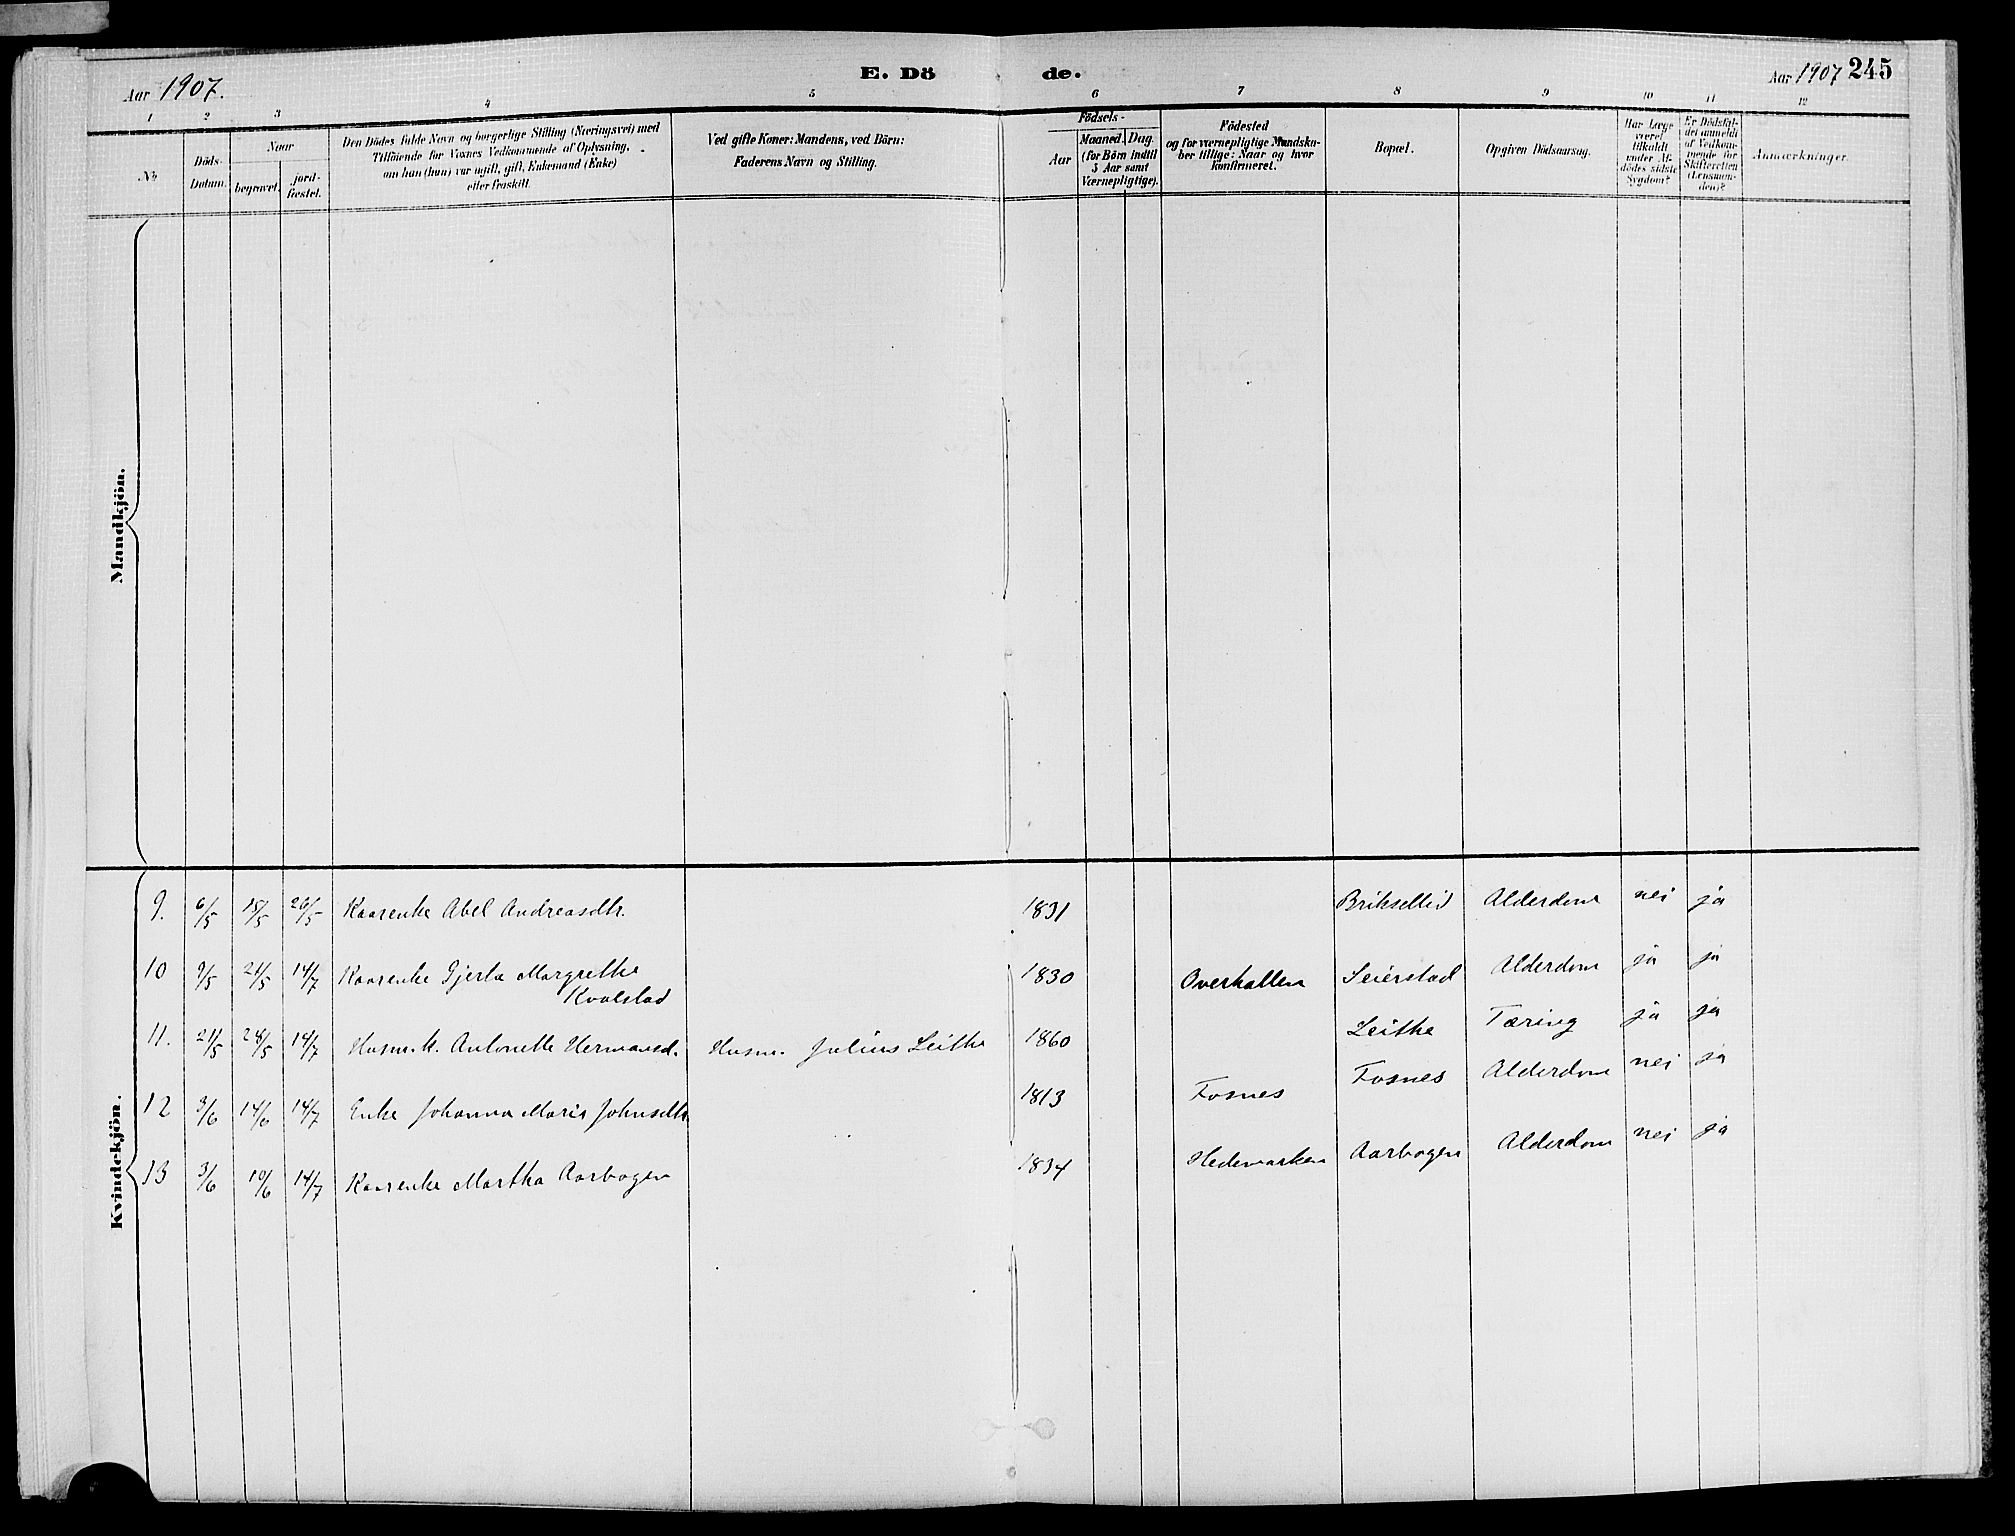 Aar 1907.
E. Dö de.
Aar 1907 245
1 2 3 4 5 6 7 8 9 10 11 12
No
Döds-
Datum.
Naar
begravet.
jord-
fæstet.
Den Dödes fulde Navn og borgerlige Stilling (Næringsvei) med
Tilföiende for Voxnes Vedkommende af Oplysning,
om han (hun) var ugift, gift, Enkemand (Enke)
eller fraskilt.
Ved gifte Koner: Mandens, ved Börn:
Faderens Navn og Stilling.
Födsels-
Aar
Maaned. Dag.
(for Börn indtil
5 Aar samt
Værnepligtige).
Födested
og for værnepligtige Mandska-
ber tillige: Naar og hvor
konfirmeret.
Bopæl.
Opgiven Dödsaarsag.
Har Læge
været
tilkaldt
under Af-
dödes sidste
Sygdom?
Er Dödsfal-
det anmeldt
af Vedkom-
mende for
Skifteretten
(Lensman-
den)?
Anmærkninger.
Mandkjön.
Kvindekjön.
9. 6/5 15/5 26/5 Kaarenke Abel Andreasdtr. 1831 Alderdom nei ja
10 9/5 24/5 14/7 Kaarenke Gjerta Margrethe 1830 Overhallen Seierstad Alderdom ja ja
Kvalstad
11. 21/5 28/5 14/7 Husm.k. Antonette Hermansd. Husm. Julius Leithe 1860 Leithe Tæring ja ja
12 3/6 14/6 14/7 Enke Johanna Maria Johnsdtr 1813 Fosnes Fosnes Alderdom nei ja
13 3/6 10/6 14/7 Kaarenke Martha Aarbogen 1834 Hedemarken Aarbogen Alderdom nei ja